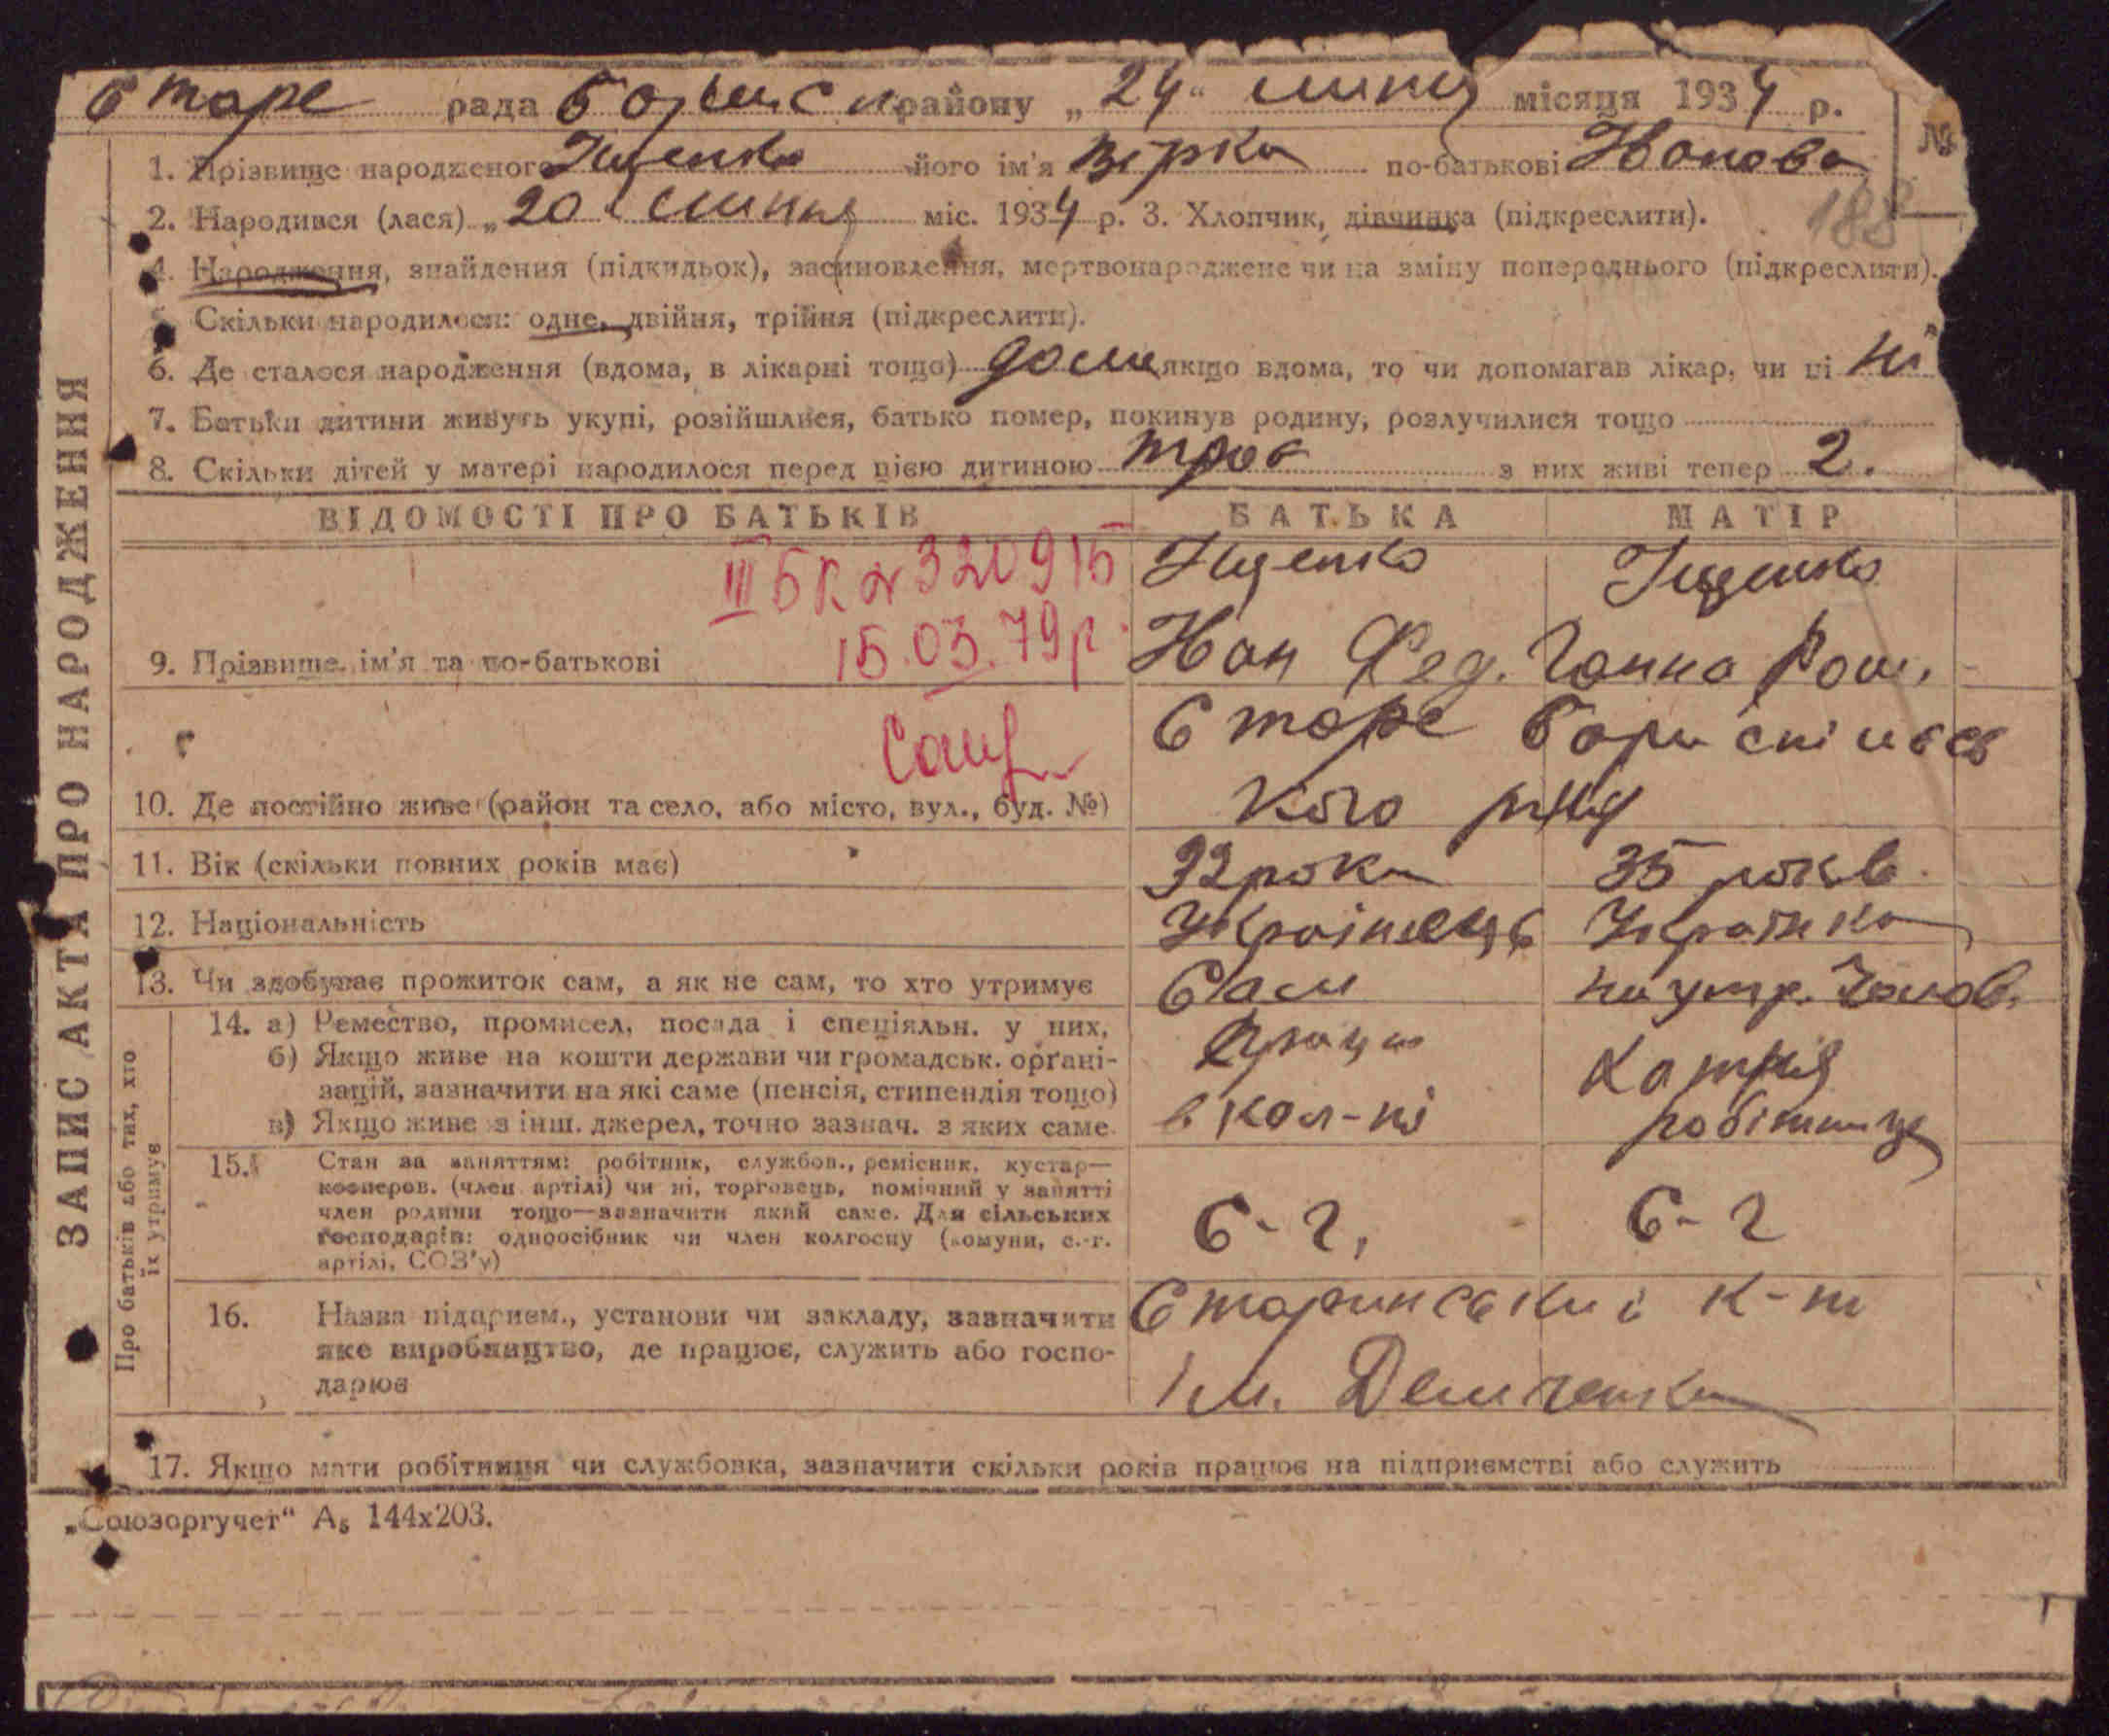 Старе рада Борисп району „24“ липня місяця 1934 р.
№
1. Прізвище народженого Іщенко його ім'я Вірка по-батькові Иванова
188
2. Народився (лася) „20 липня міс. 1934 р. 3. Хлопчик, дівчинка (підкреслити).
4. Народження, знайдення (підкидьок), засиновлення, мертвонароджене чи на зміну попереднього (підкреслити).
Скільки народилося: одне, двійня, трійня (підкреслити).
6. Де сталося народження (вдома, в лікарні тощо) дома якщо вдома, то чи допомагав лікар, чи ні ні
7. Батьки дитини живуть укупі, розійшлися, батько помер, покинув родину, розлучилися тощо
8. Скільки дітей у матері народилося перед цією дитиною троє з них живі тепер 2.
ЗАПИС АКТА ПРО НАРОДЖЕННЯ
ВІДОМОСТІ ПРО БАТЬКІВ БАТЬКА МАТІР
III БК № 320915
15.03.79р.
Іщенко Іщенко
9. Прізвище, ім'я та по-батькові Иван Фед. Ганна Ром.
Старе Бориспільсь
10. Де постійно живе (район та село, або місто, вул., буд. №) кого р-ну
11. Вік (скільки повних років має) 32 роки 35 років
12. Національність Українець Українка
13. Чи здобуває прожиток сам, а як не сам, то хто утримує Сам на утр. чолов.
Про батьків або тих, хто їх утримує
14. а) Ремество, промисел, посада і спеціяльн. у них,
б) Якщо живе на кошти держави чи громадськ. орґані-
зацій, зазначити на які саме (пенсія, стипендія тощо)
в) Якщо живе з інш. джерел, точно зазнач. з яких саме
Працює
в кол-пі
Хатня
робітниця
15. Стан за заняттям: робітник, службов., ремісник, кустар—
кооперов. (член артілі) чи ні, торговець, помічний у занятті
член родини тощо—зазначити який саме. Для сільських
господарів: одноосібник чи член колгоспу (комуни, с.-г.
артілі, СОЗ'у)
С-г. С-г
16. Назва підприєм., установи чи закладу, зазначити
яке виробництво, де працює, служить або госпо-
дарює
Старинський к-п
Ім. Демченка
17. Якщо мати робітниця чи службовка, зазначити скільки років працює на підприємстві або служить
„Союзоргучет“ А₅ 144x203.